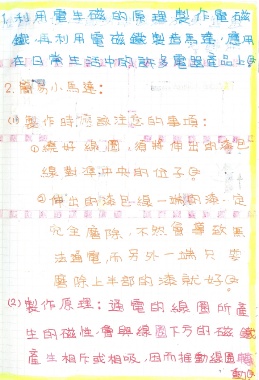 1.利用電生磁的原理製作電磁
鐵,再利用電磁鐵製造馬達,應用
在日常生活中的許多電器產品上。
2.簡易小馬達:
(1)製作時應該注意的事項:
①繞好線圈,須將伸出的漆包
線對準中央的位子。
②伸出的漆包線一端的漆,完
全磨除,不然會導致無
法通電,而另外一端只要
磨除上半部的漆就好。
(2)製作原理:通電的線圈所產
生的磁性,會與線圈下方的磁鐵
產生相斥或相吸,因而推動線圈轉
動。